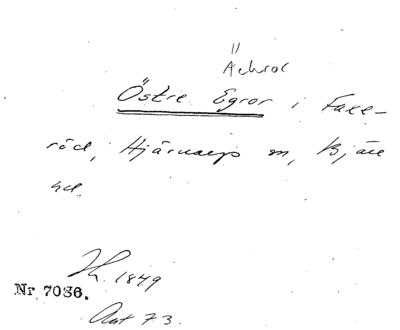 "
Åekrol
Östre Egror i Faxe-
röd, Hjärnarps sn, Bjäre
hd.
Th. 1849
Nr 7036.
Ant 73.